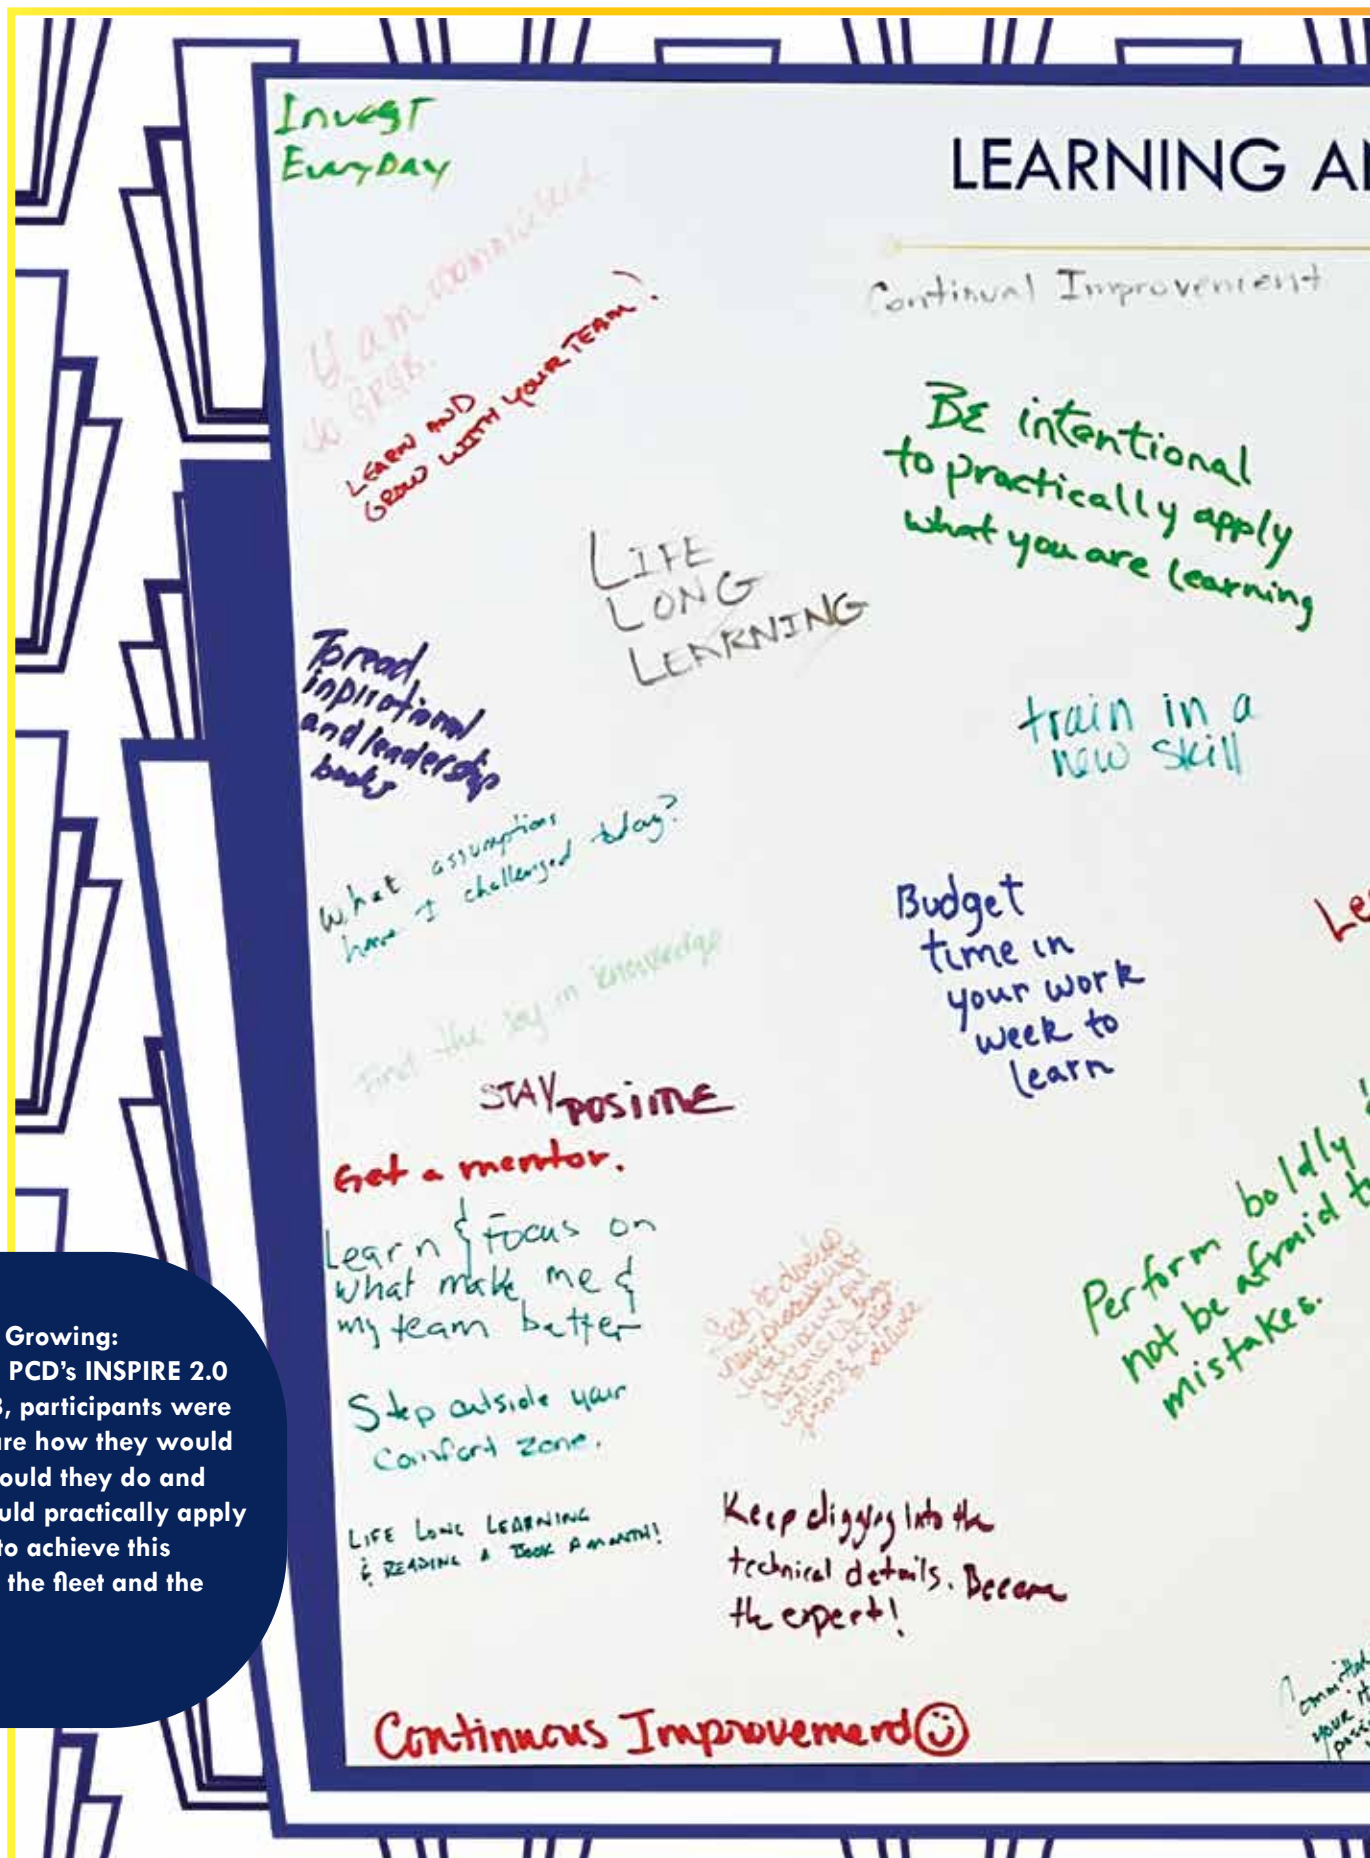 Invest
EveryDay
LEARNING A
Continual Improvement
I am committed
to
LEARN AND
GROW WITH YOUR TEAM!
BE intentional
to practically apply
what you are learning
LIFE
LONG
LEARNING
To read
inpirational
and leadership
books
train in a
new skill
What assumptions
have I challenged today?
Budget
time in
your work
week to
learn
Le
Find the joy in knowledge
STAY POSITIVE
Get a mentor.
Learn & Focus on
what make me &
my team better
Perform boldly
not be afraid t
mistakes.
Step outside your
Comfort zone.
LIFE LONG LEARNING
& READING A BOOK A MONTH!
Keep digging into the
technical details. Become
the expert!
Committed
your
Continuous Improvement
Growing:
PCD's INSPIRE 2.0
3, participants were
are how they would
ould they do and
uld practically apply
to achieve this
the fleet and the